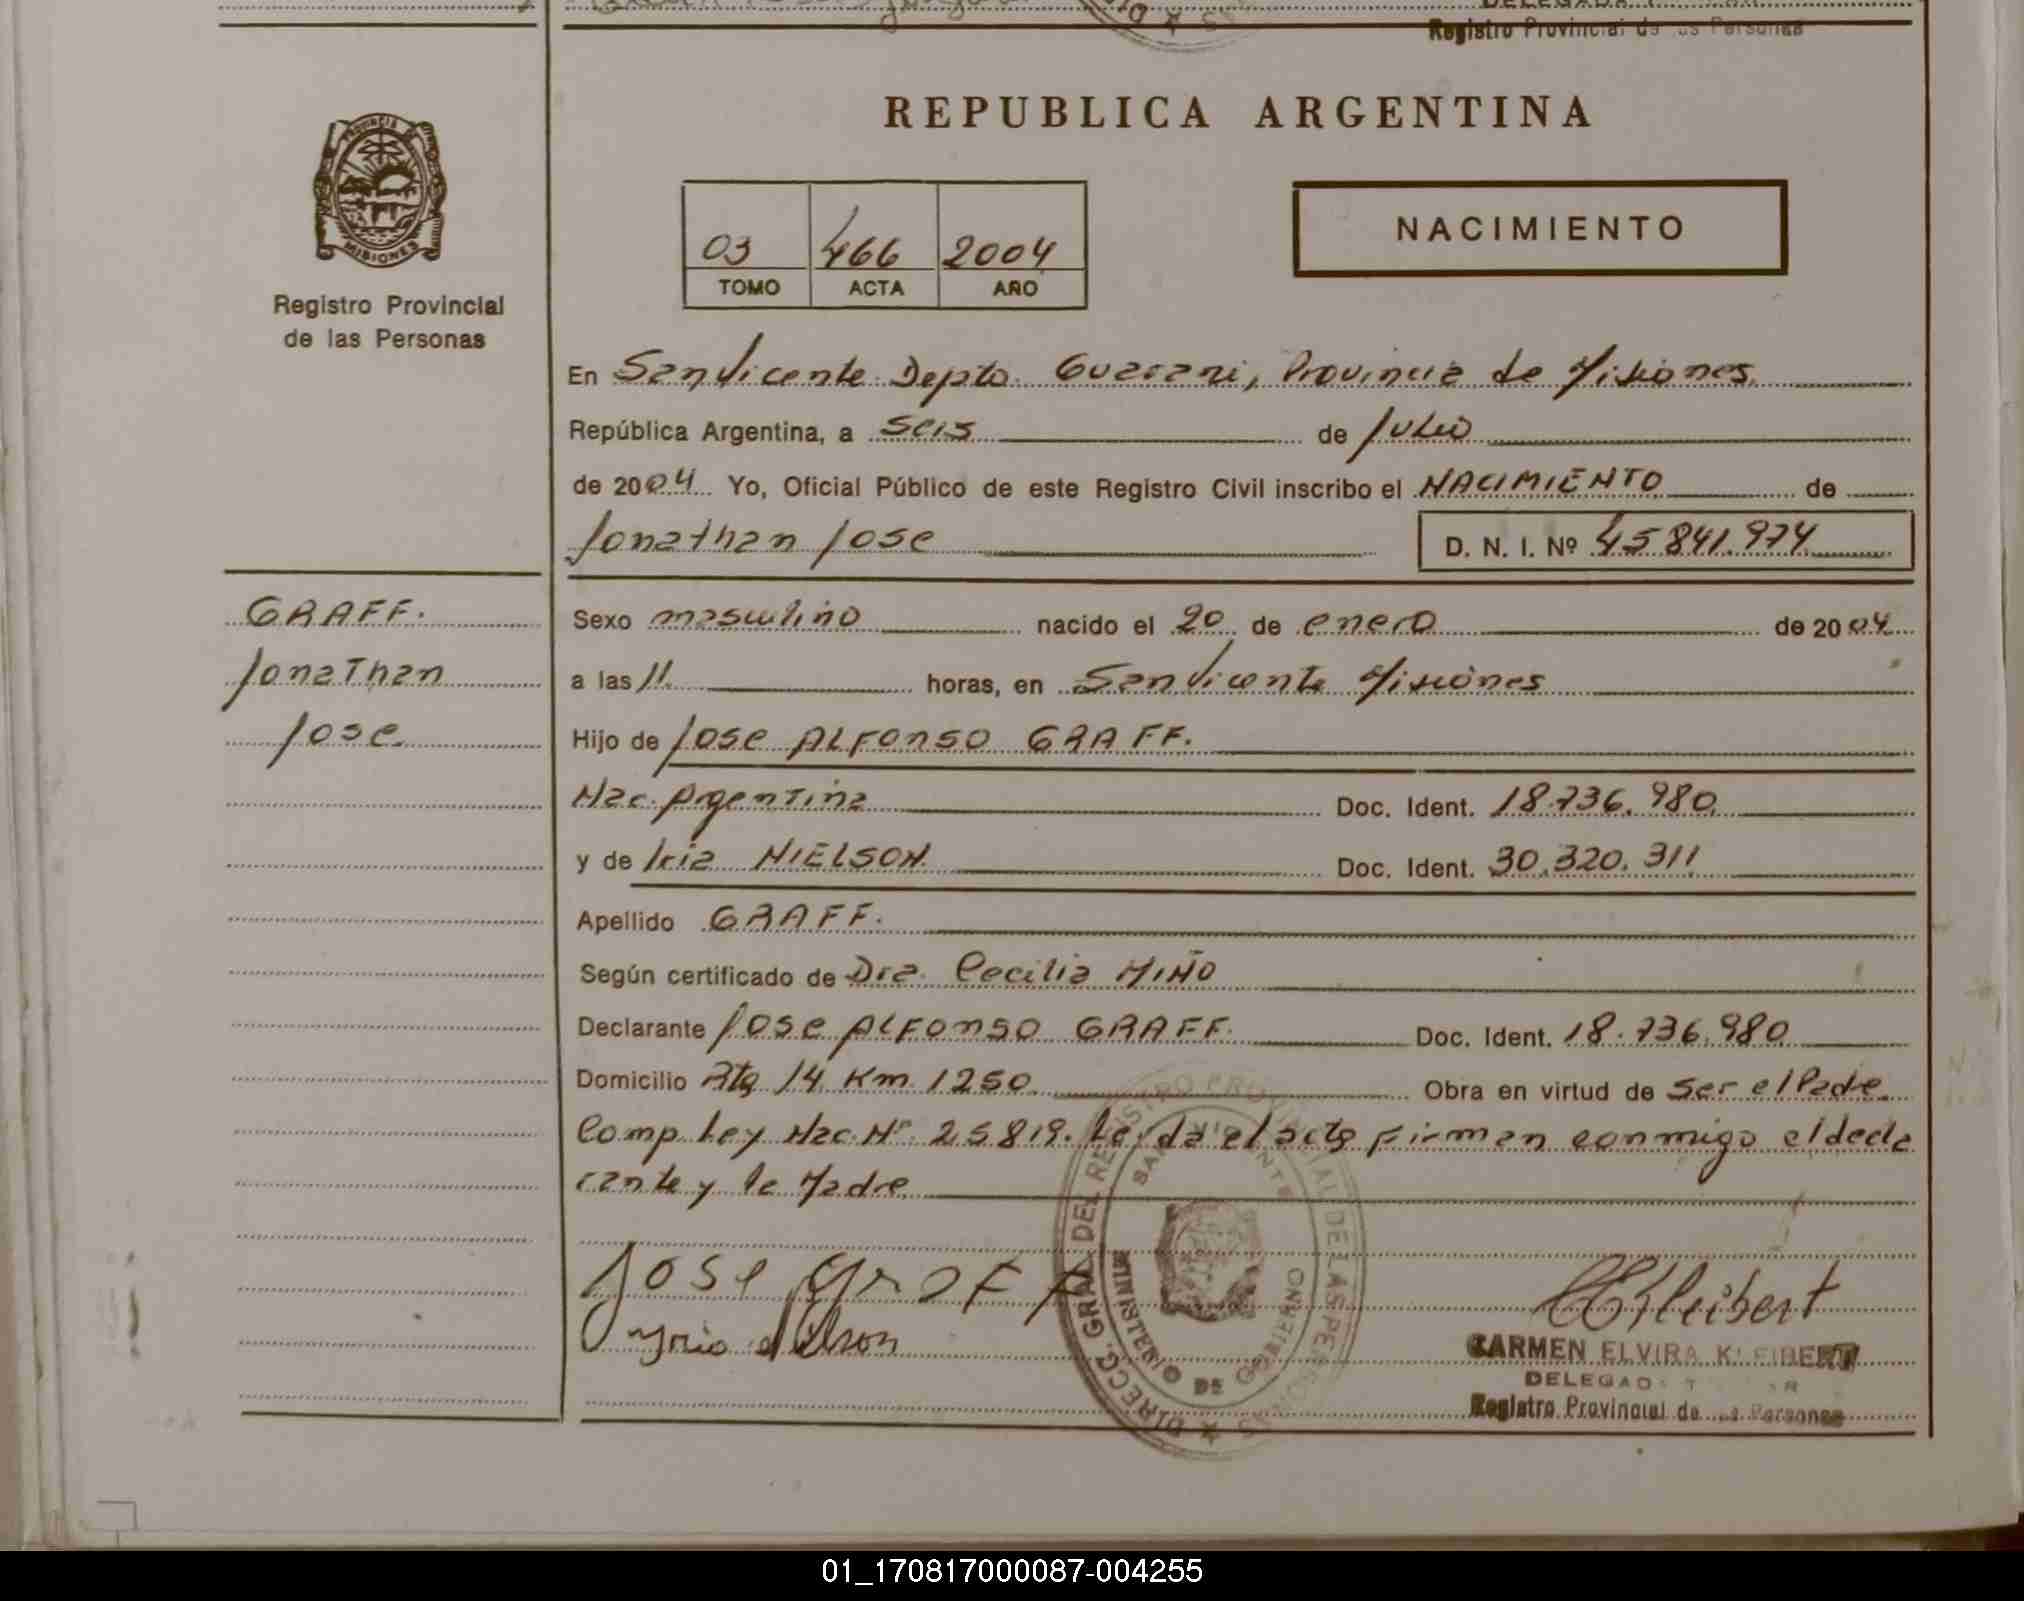 Registro Provincial de las Personas
REPUBLICA ARGENTINA
PROVINCIA DE
MISIONES
Registro Provincial
de las Personas
03 466 2004
TOMO ACTA AÑO
NACIMIENTO
En San Vicente Depto Guarani, Provincia de Misiones
República Argentina, a seis de Julio
de 2004 Yo, Oficial Público de este Registro Civil inscribo el NACIMIENTO de
Jonathan Jose D. N. I. Nº 45.841.974
GRAFF.
Jonathan
Jose
Sexo masculino nacido el 20 de enero de 2004
a las 11 horas, en San Vicente Misiones
Hijo de Jose ALFONSO GRAFF.
Nac. Argentina Doc. Ident. 18.736.980
y de Iria NIELSON Doc. Ident. 30.320.311
Apellido GRAFF.
Según certificado de Dra. Cecilia MIÑO
Declarante Jose ALFONSO GRAFF. Doc. Ident. 18.736.980
Domicilio Rta 14 Km 1250 Obra en virtud de ser el Padre
Comp. Ley Nac. Nº 25819. Leida el acta firman conmigo el decla
rante y la Madre
Jose Graff
CKleibert
CARMEN ELVIRA KLEIBERT
Registro Provincial de las Personas
DIRECC. GRAL. DEL REGISTRO PROVINCIAL DE LAS PERSONAS
SAN VICENTE
MINISTERIO DE GOBIERNO
01_170817000087-004255